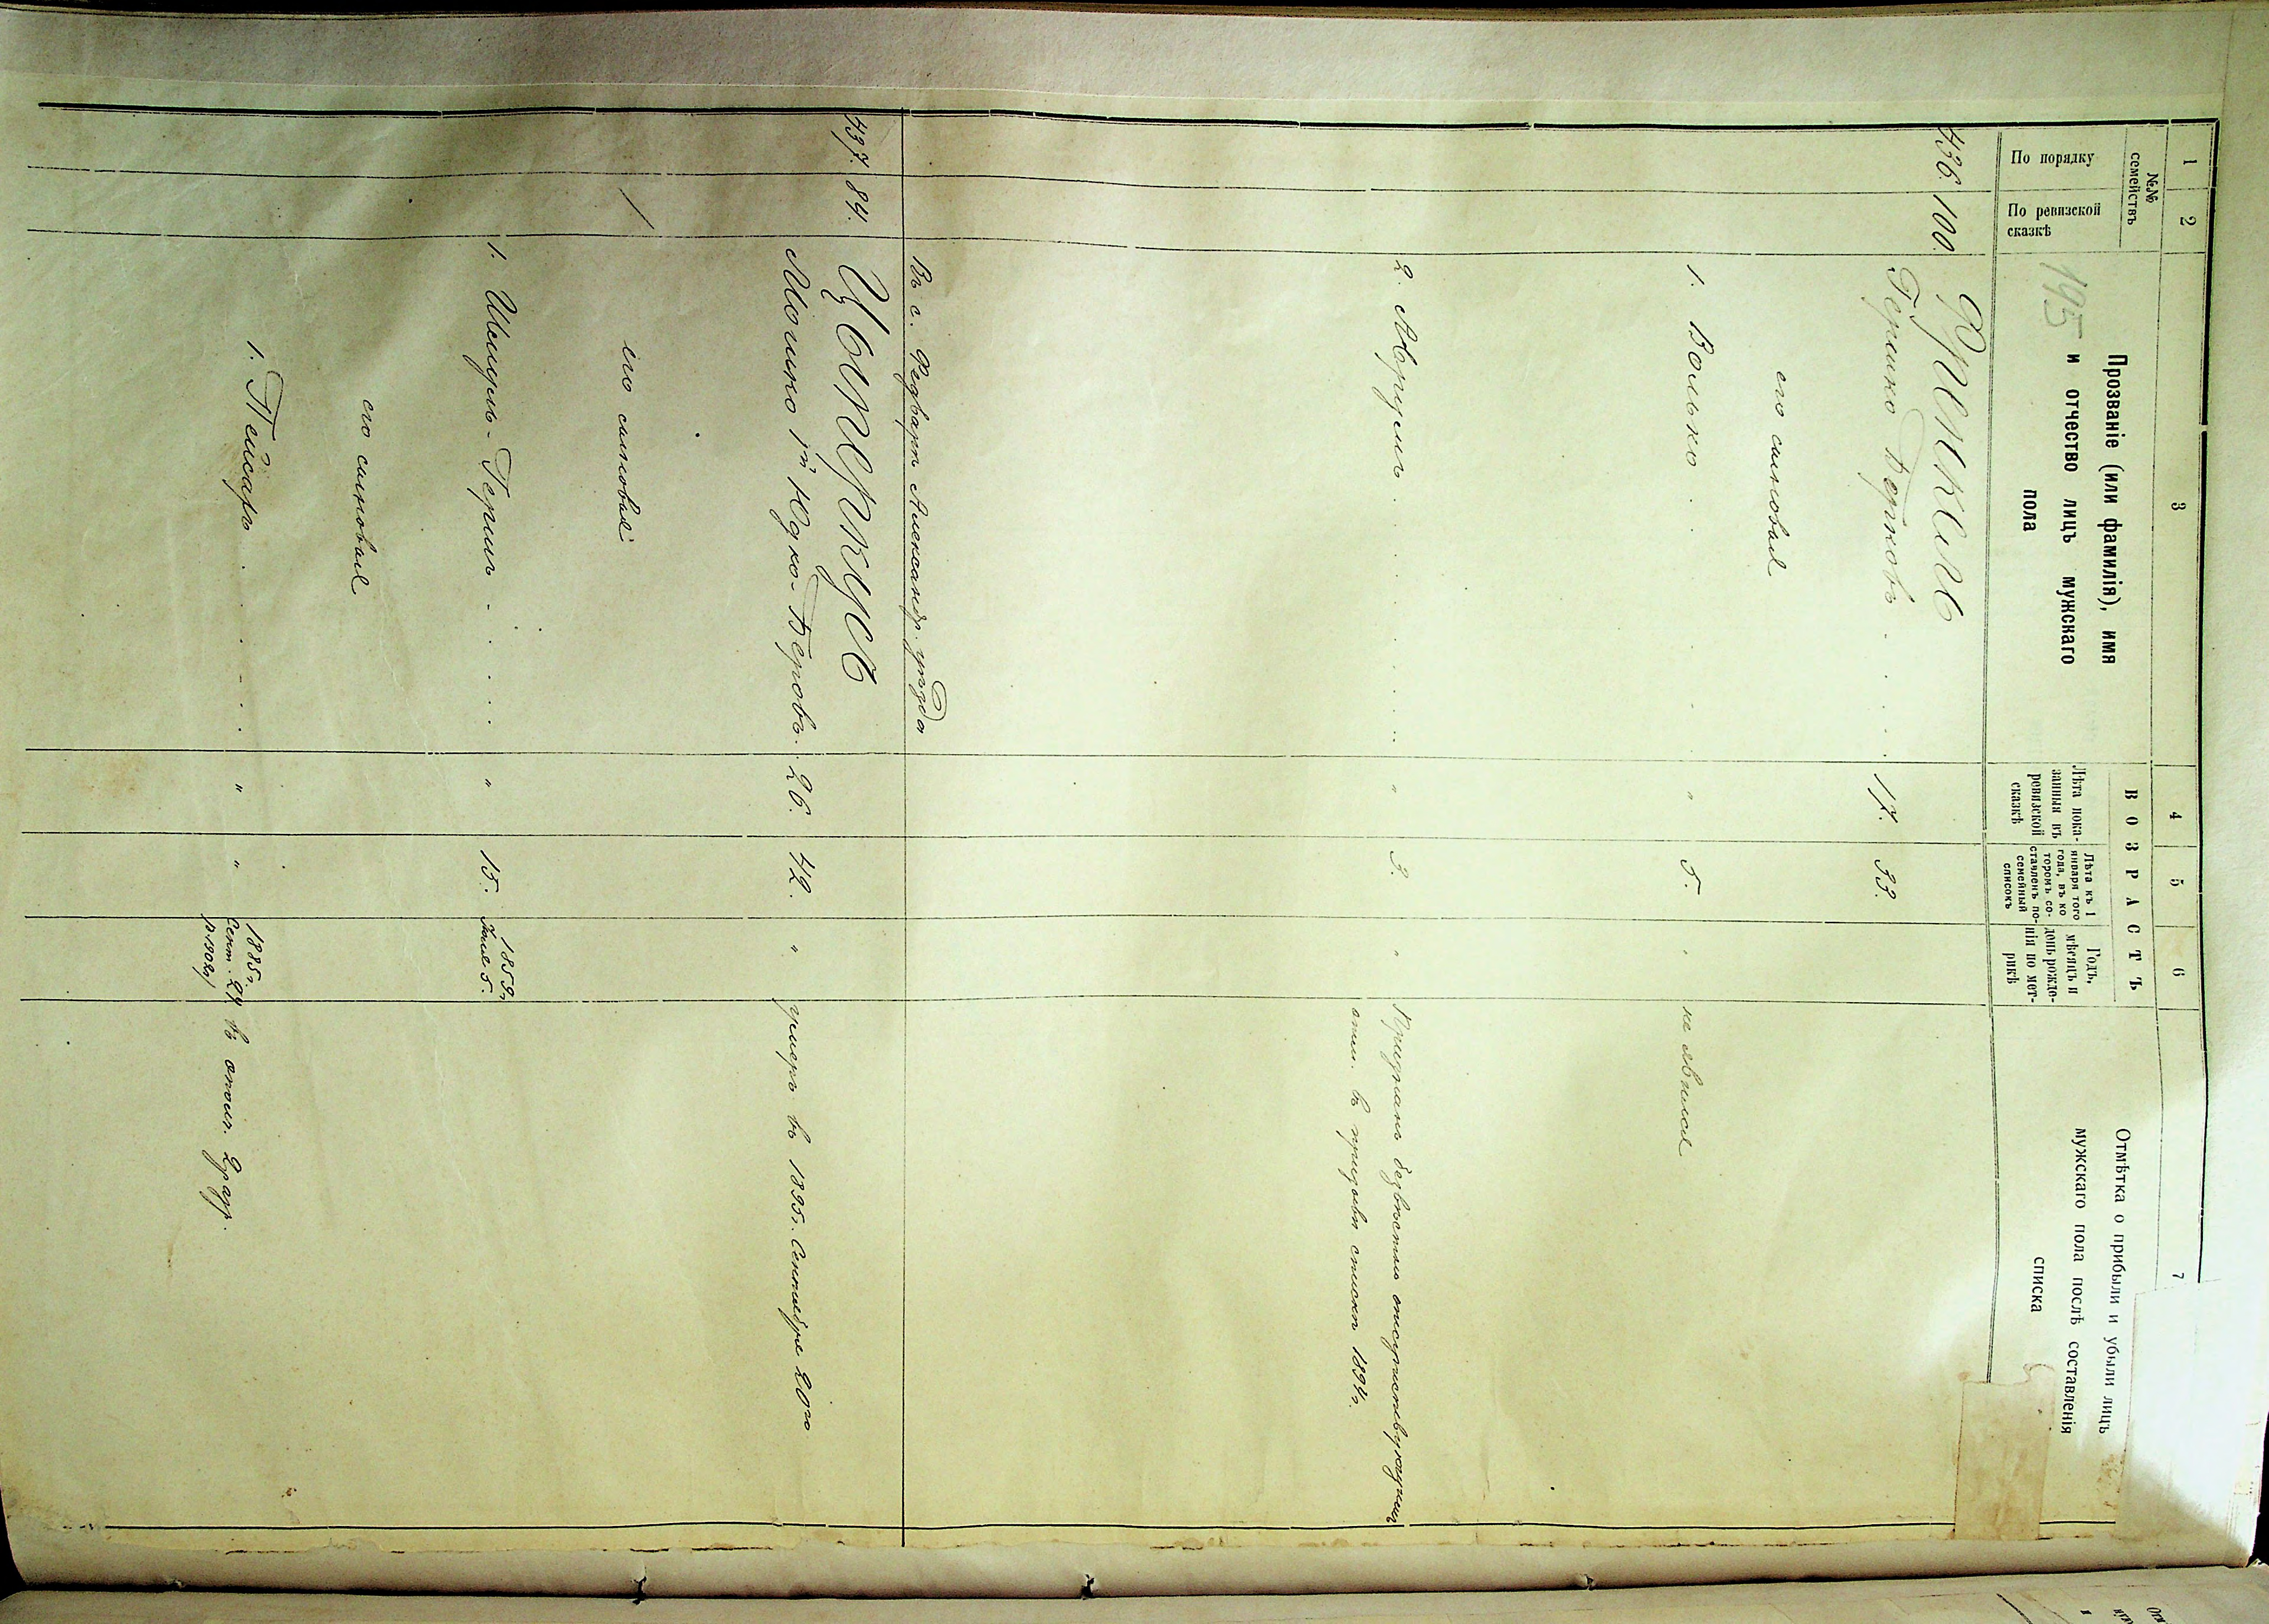 1 2 3 4 5 6 7
№№ семействъ
По порядку
По ревизской сказкѣ
Прозваніе (или фамилія), имя
и отчество лицъ мужскаго
пола
195
ВОЗРАСТЪ
Лѣта пока-
занныя въ
ревизской
сказкѣ
Лѣта къ 1
января того
года, въ ко
торомъ со-
ставленъ по-
семейный
списокъ
Годъ,
мѣсяцъ и
день рожде-
нія по мет-
рикѣ
Отмѣтка о прибыли и убыли лицъ
мужскаго пола послѣ составленія
списка
436. 100. Френкель
Гершко Берковъ . . . . 17. 33.
его сыновья
1. Волько . . . . " 5. "
не явился
2. Аврумъ . . . . " 3. "
Признанъ безвѣстно отсутствующимъ
в призывн. списки 1894 г.
Въ с. Федвари Александр. уѣзда
437. 84. Цвиперкусъ
Мошко 1й Юдко-Беровъ. 26. 42. " умеръ въ 1895 г. Сентября 20го
его сыновья:
1. Шмуль-Гершъ - . . . . " 15. 1859 г.
Іюля 5.
его сыновья
1. Пейсахъ . . . . " " 1885 г.
Сент. 24 въ
р. 1902 г.